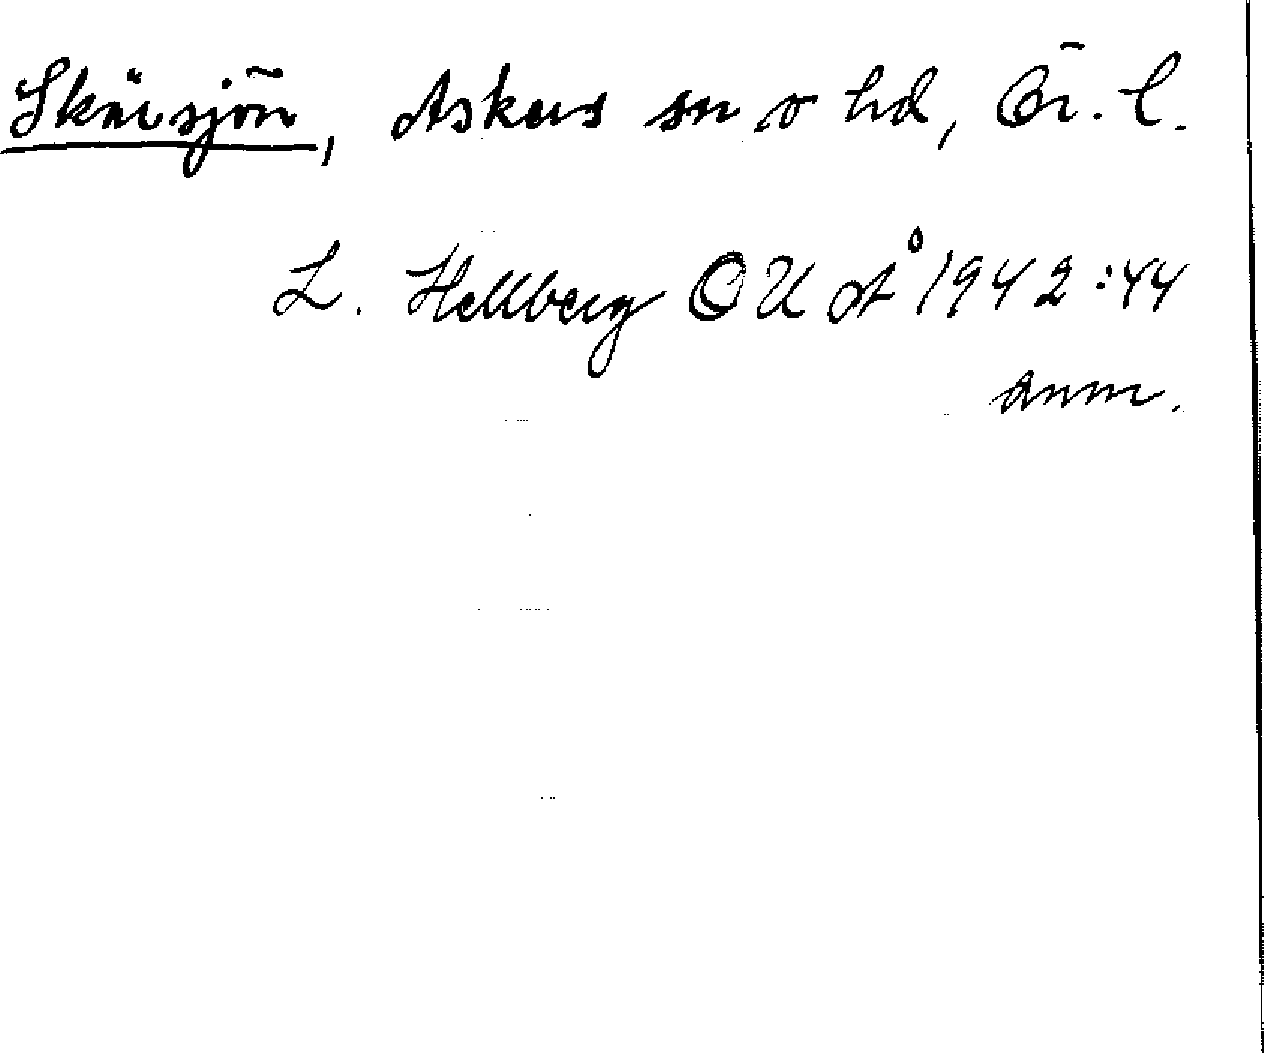 Skärsjön, Askers sn o hd, Ör. l.
L. Hellberg OUÅ 1942:44
anm.